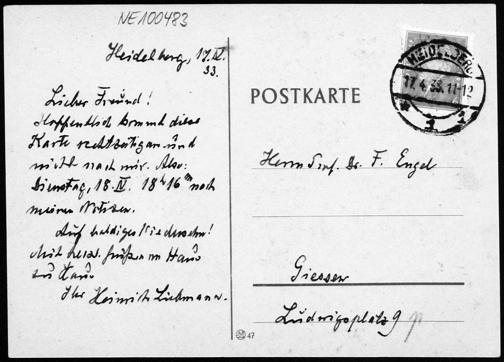 NE100483
Heidelberg, 17.IV.
33.
Lieber Freund!
Hoffentlich kommt diese
Karte rechtzeitig an und
nicht nach mir. Also:
Dienstag, 18.IV. 18h16m nach
meinen Notizen.
Auf baldiges Wiedersehn!
Mit herzl. Grüßen von Haus
zu Haus
Ihr Heinrich Liebmann.
POSTKARTE
HEIDELBERG
17.4.33.11-12
* 1 z
Herrn Prof. Dr. F. Engel
Giessen
Ludwigsplatz 9
47